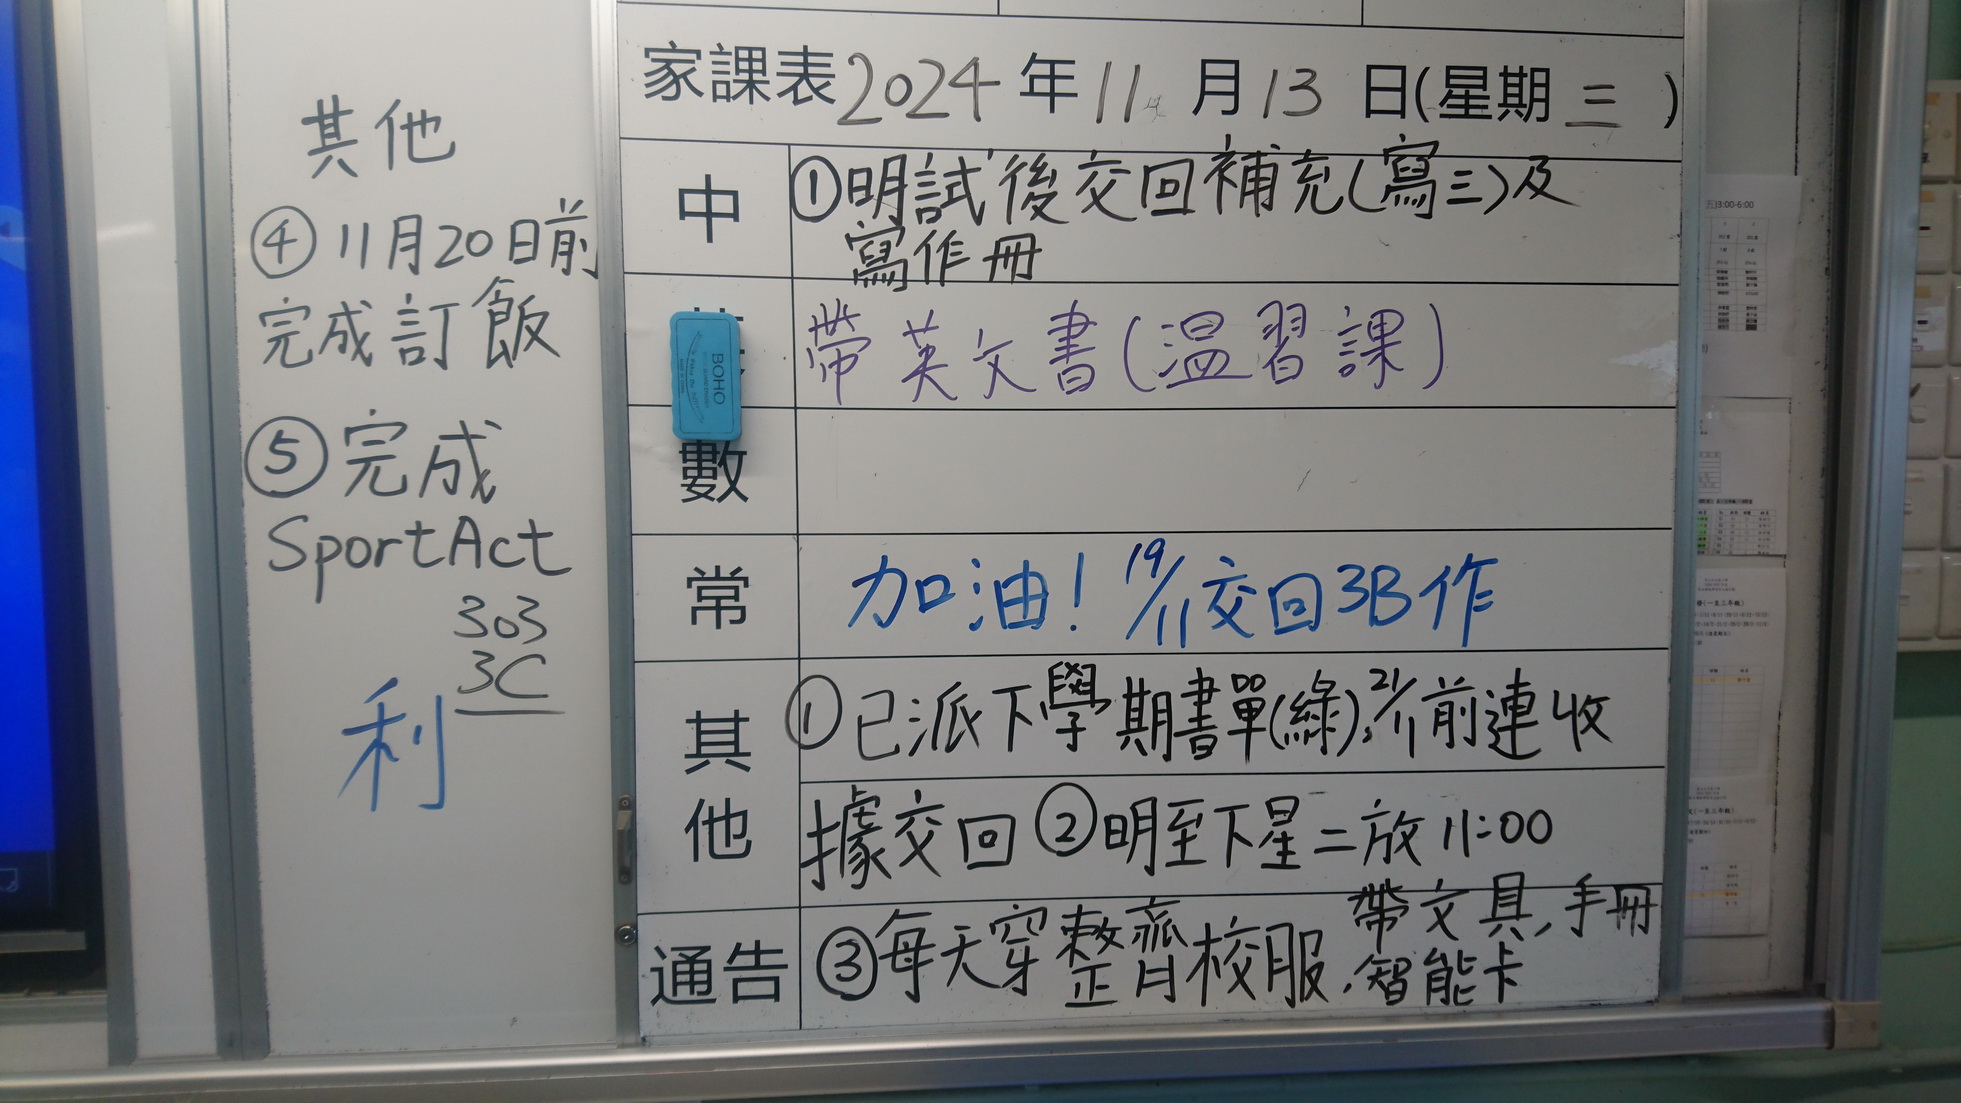 其他
④ 11月20日前
完成訂飯
⑤ 完成
SportAct
303
3C
利
家課表 2024 年 11 月 13 日(星期 三 )
中
①明試後交回補充(寫三)及
寫作冊
帶英文書(温習課)
BOHO
數
常
加油! 19/11交回3B作
其他
①已派下學期書單(綠), 21/11前連收
據交回 ②明至下星二放11:00
通告
③每天穿整齊校服,帶文具,手冊
,智能卡